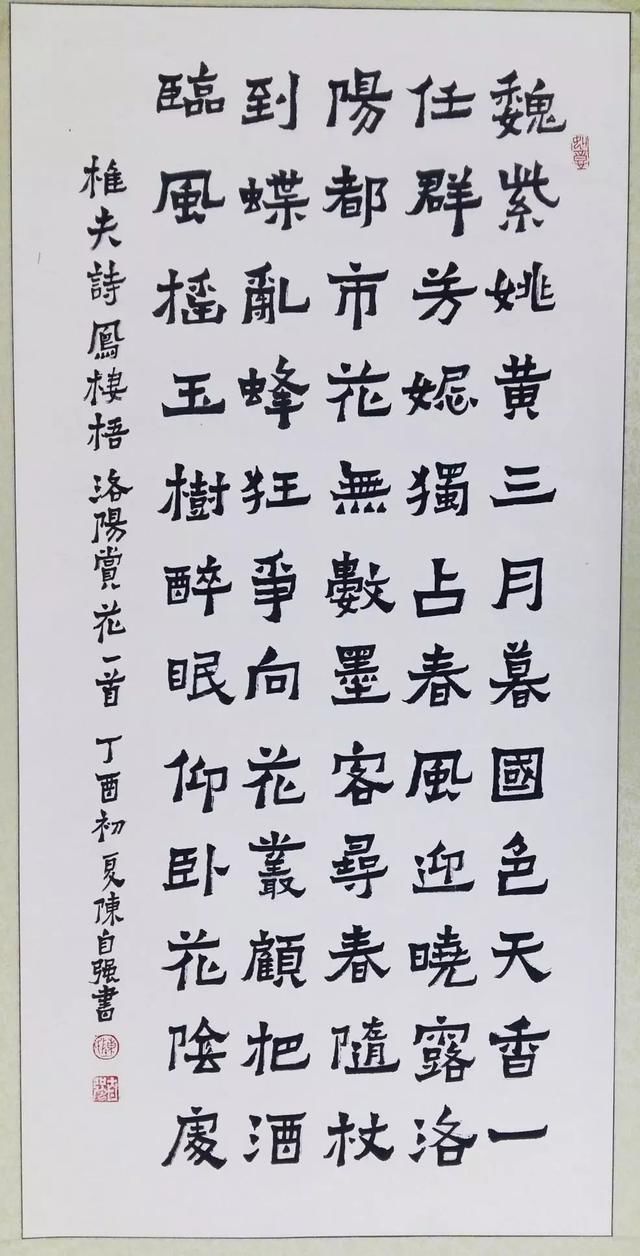 魏紫姚黄三月暮國色天香一
任群芳妮獨占春風迎曉露洛
陽都市花無數墨客尋春隨杖
到蝶亂蜂狂爭向花叢顧把酒
臨風摇玉樹醉眠仰卧花陰處
樵夫詩鳳棲梧洛陽賞花一首丁酉初夏陳自强書